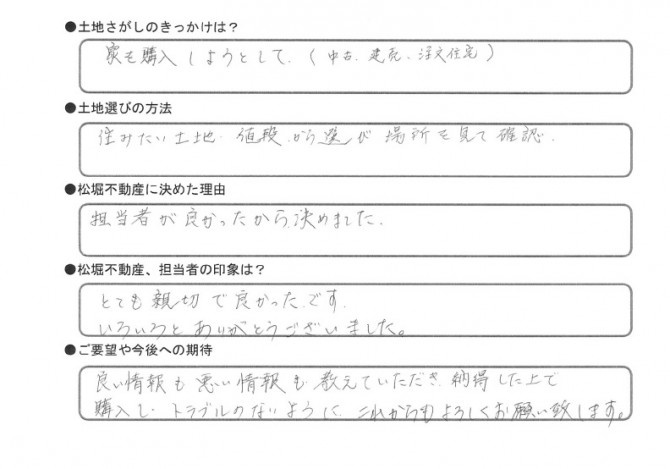 ●土地さがしのきっかけは？
家を購入しようとして、（中古、建売、注文住宅）
●土地選びの方法
住みたい土地、値段から選び場所を見て確認、
●松堀不動産に決めた理由
担当者が良かったから決めました、
●松堀不動産、担当者の印象は？
とても親切で良かったです、
いろいろとありがとうございました。
●ご要望や今後への期待
良い情報も悪い情報も教えていただき、納得した上で
購入し、トラブルのないように、これからもよろしくお願い致します。